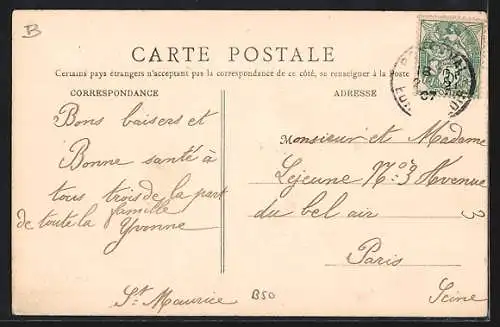 B
CARTE POSTALE
Certains pays étrangers n'acceptant pas la correspondance de ce côté, se renseigner à la Poste
CORRESPONDANCE
Bons baisers et
Bonne santé à
tous trois de la part
de toute la famille
Yvonne
St Maurice
B50
ADRESSE
Monsieur et Madame
Lejeune No 3 Avenue
du bel air 3
Paris
Seine